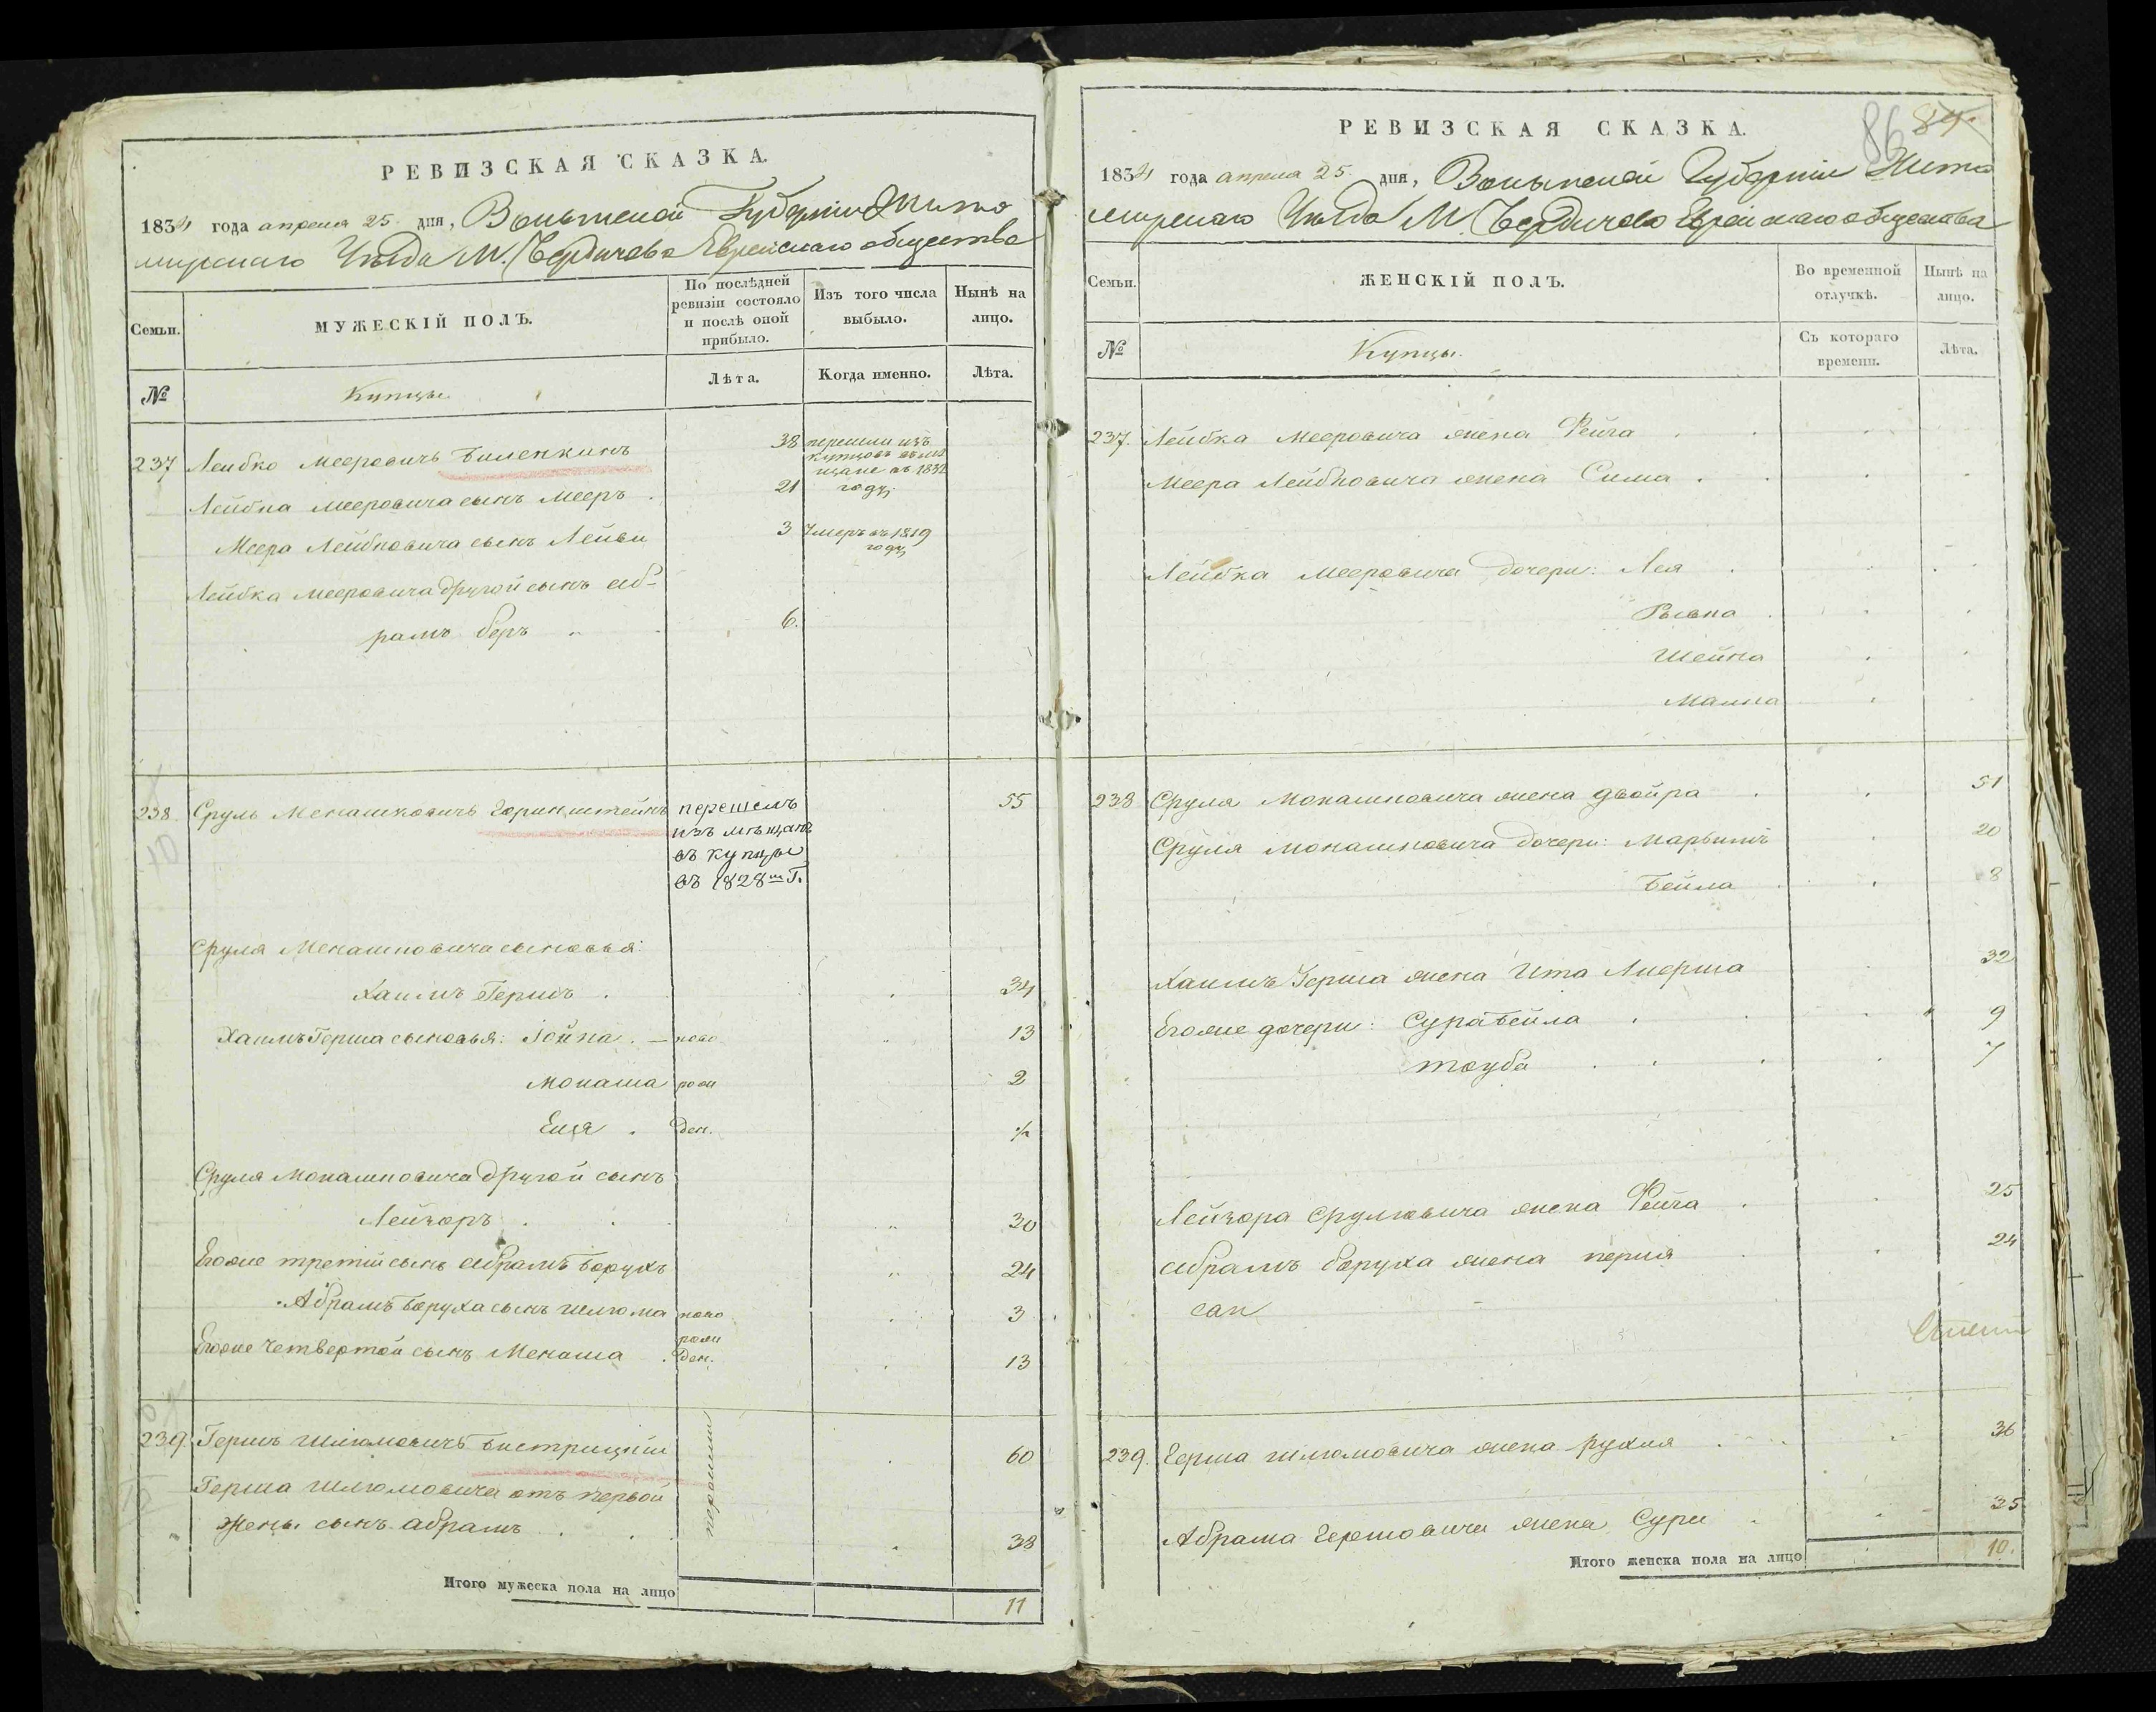 РЕВИЗСКАЯ СКАЗКА.
1834 года апреля 25 дня, Волынской Губернии Жито
мирскаго Уѣзда М. Бердичева Еврейскаго общества
Семьи.
МУЖЕСКІЙ ПОЛЪ.
По послѣдней
ревизіи состояло
и послѣ оной
прибыло.
Изъ того числа
выбыло.
Нынѣ на
лицо.
№
Купцы
Лѣта.
Когда именно.
Лѣта.
237 Лейбко Мееровичъ Биленкинъ 38 перешли изъ
купцовъ въ мѣ
щане въ 1832
Лейбка Мееровича сынъ Мееръ 21 году
Меера Лейбковича сынъ Лейви 3 Умеръ въ 1819
году
Лейбка Мееровича другой сынъ Аб-
рамъ беръ 6.
238 Сруль Менашковичъ Горинштейнъ перешелъ 55
изъ мѣщанъ
10
въ купцы
въ 1828 м Г.
Сруля Менашковича сыновья:
Хаимъ Гершъ 34
Хаимъ Герша сыновья: Іойна. — ново 13
Монаша рож 2
Еля ден. ½
Сруля Монашковича другой сынъ
Лейзоръ 30
Егоже третій сынъ Абрамъ Борухъ 24
Абрамъ Боруха сынъ Шлюма ново 3
рож
Егоже четвертой сынъ Менаша ден. 13
239 Гершъ Шлюмовичъ Бистрицкій 60
Герша Шлюмовича отъ первой
жены сынъ Абрамъ 38
Итого мужеска пола на лицо 11
86 87
РЕВИЗСКАЯ СКАЗКА.
1834 года апреля 25 дня, Волынской Губерніи Жито
мирскаго Уѣзда М. Бердичева Еврейскаго общества
Семьи.
ЖЕНСКІЙ ПОЛЪ.
Во временной
отлучкѣ.
Нынѣ на
лицо.
№
Купцы.
Съ котораго
времени.
Лѣта.
237. Лейбка Мееровича жена Фейга
Меера Лейбковича жена Сима
Лейбка Мееровича дочери: Лея
Рывка
Шейна
Малка
238 Сруля Монашковича жена Двойра 51
Сруля Монашковича дочери: Марьимъ 20
Бейла 8
Хаимъ Герша жена Ита 32
Егоже дочери: Сура Бейла 9
Тауба 7
Лейзора Срулювича жена Фейга 25
Абрамъ Боруха жена перля 24
239. Герша Шлюмовича жена рухля 36
Абрама Гершовича жена Сури 35
Итого женска пола на лицо 10.